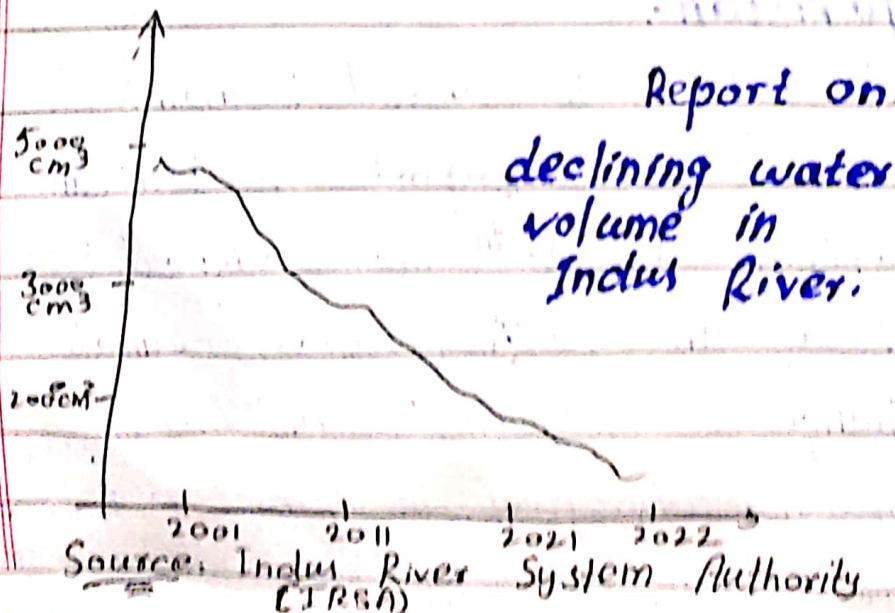 Report on
declining water
volume in
Indus River.
5000
cm3
3000
cm3
200cm3
2001
2011
2021
2022
Source: Indus River System Authority
(IRSA)